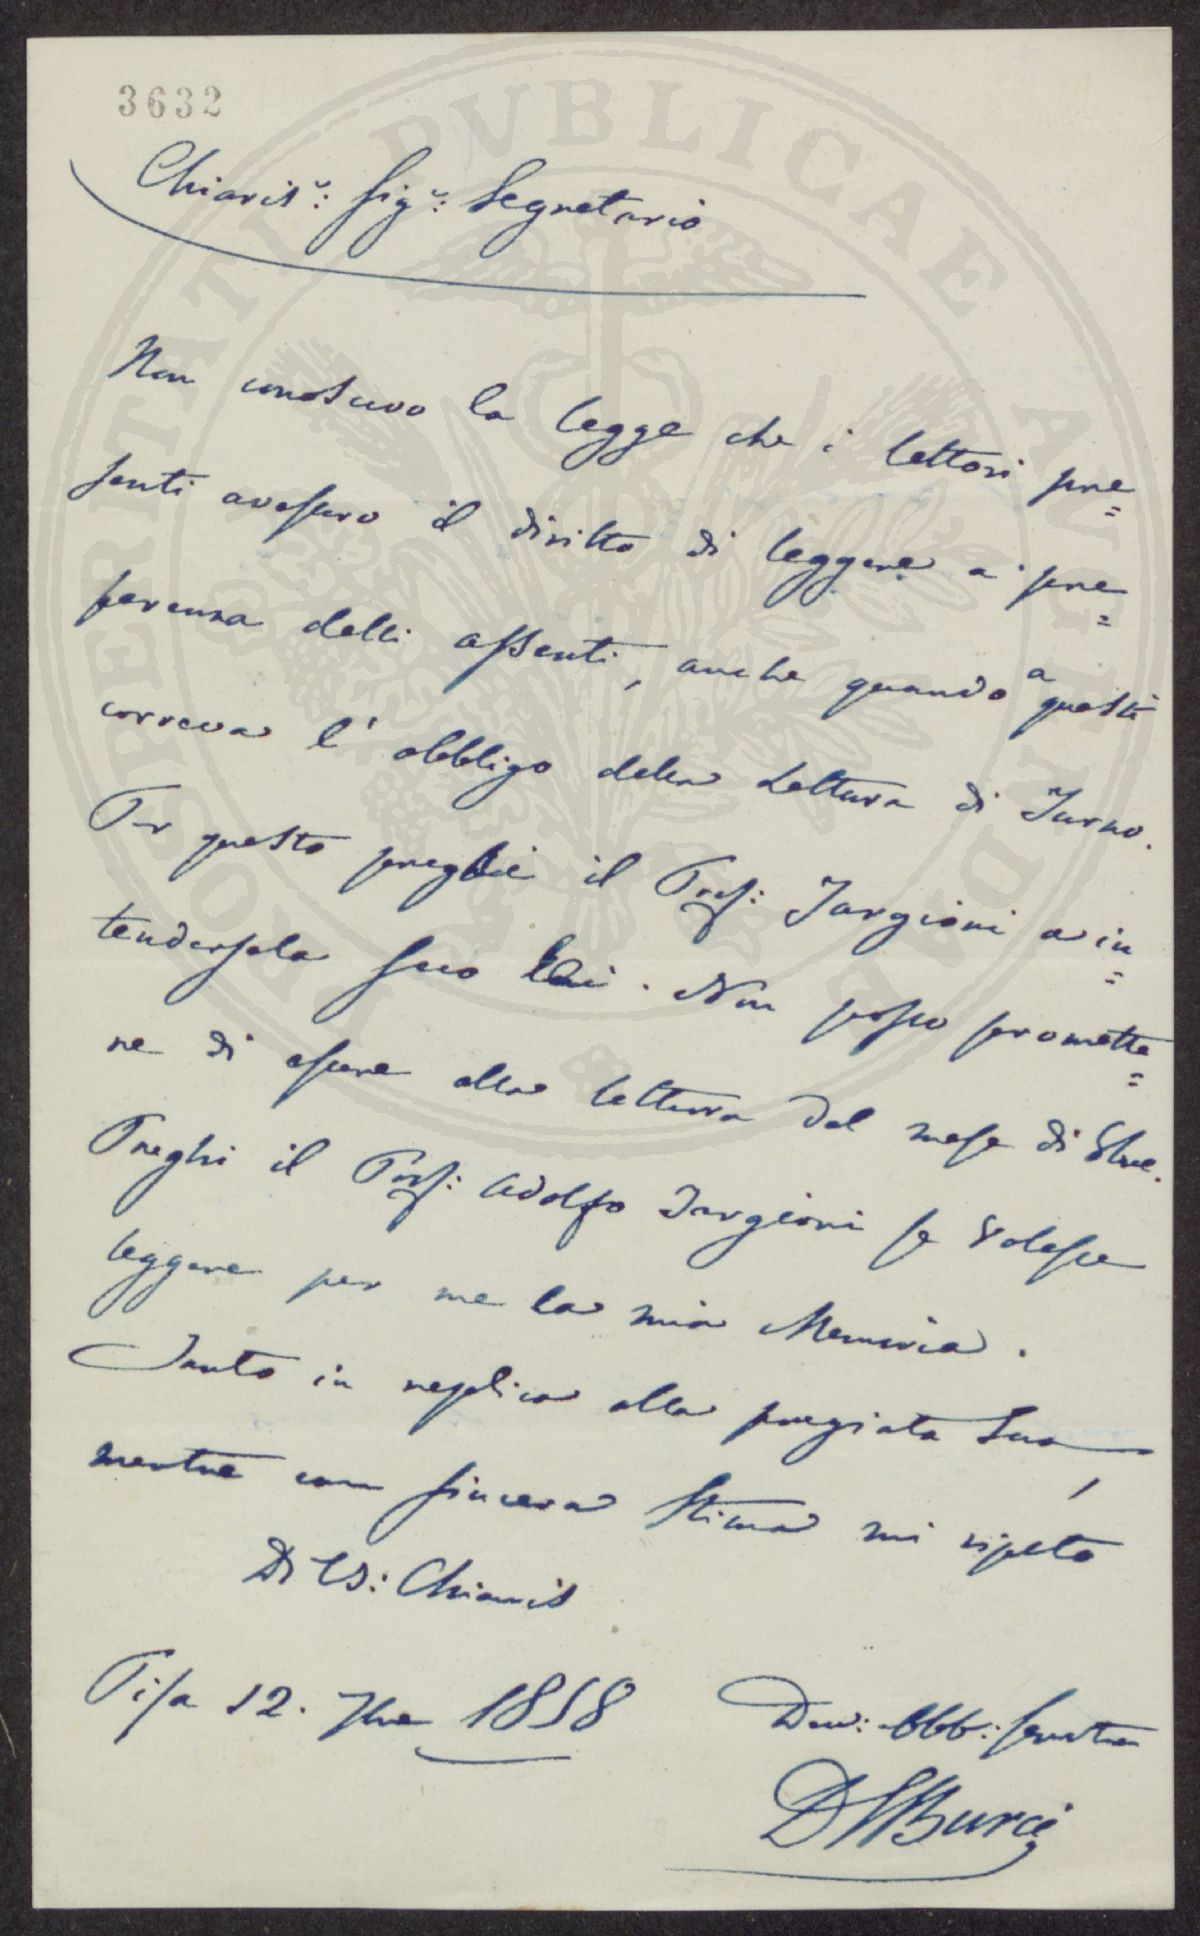 3632
Chiaris.: Sig.: Segretario
Non conoscevo la legge che i lettori pre=
senti avessero il diritto di leggere a pre=
ferenza delli assenti, anche quando a questi
correva l'obbligo della Lettura di Turno.
Per questo preghi il Prof: Targioni a in=
tendersela seco Lui. Non posso promette=
re di essere alla lettura del mese di 8bre.
Preghi il Prof: Adolfo Targioni se volesse
leggere per me la mia Memoria.
Tanto in replica alla pregiata Sua,
mentre con sincera Stima mi ripeto
Di VS: Chiaris
Pisa 12. 7bre 1858
Dev: Obb: Servitore
D Burci
PROSPERITATI PVBLICAE AVGENDAE